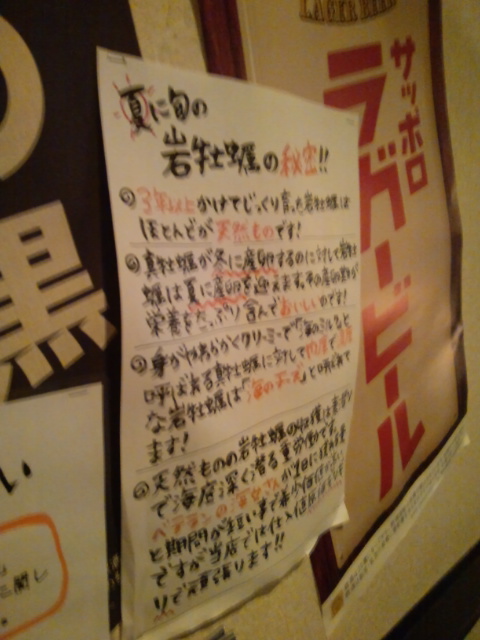 夏に旬の
岩牡蠣の秘密!!
① 3年以上かけてじっくり育った岩牡蠣は
ほとんどが天然ものです!
② 真牡蠣が冬に産卵するのに対して岩牡
蠣は夏に産卵を迎えます。その為
栄養をたっぷり含んでおいしいのです!
③ 身がやわらかくクリーミーで「海のミルク」と
呼ばれる真牡蠣に対して
な岩牡蠣は「海のチーズ」と呼ばれて
ます!
④ 天然ものの岩牡蠣の収穫は素潜り
で海底深く潜る重労働です。
ベテランの海女さんが1日に
と期間が短い事で希少価値が高い
ですが当店では仕入れ値
りで頑張ります!!
LAGER BEER
サッポロ
ラガービール
の
黒
い